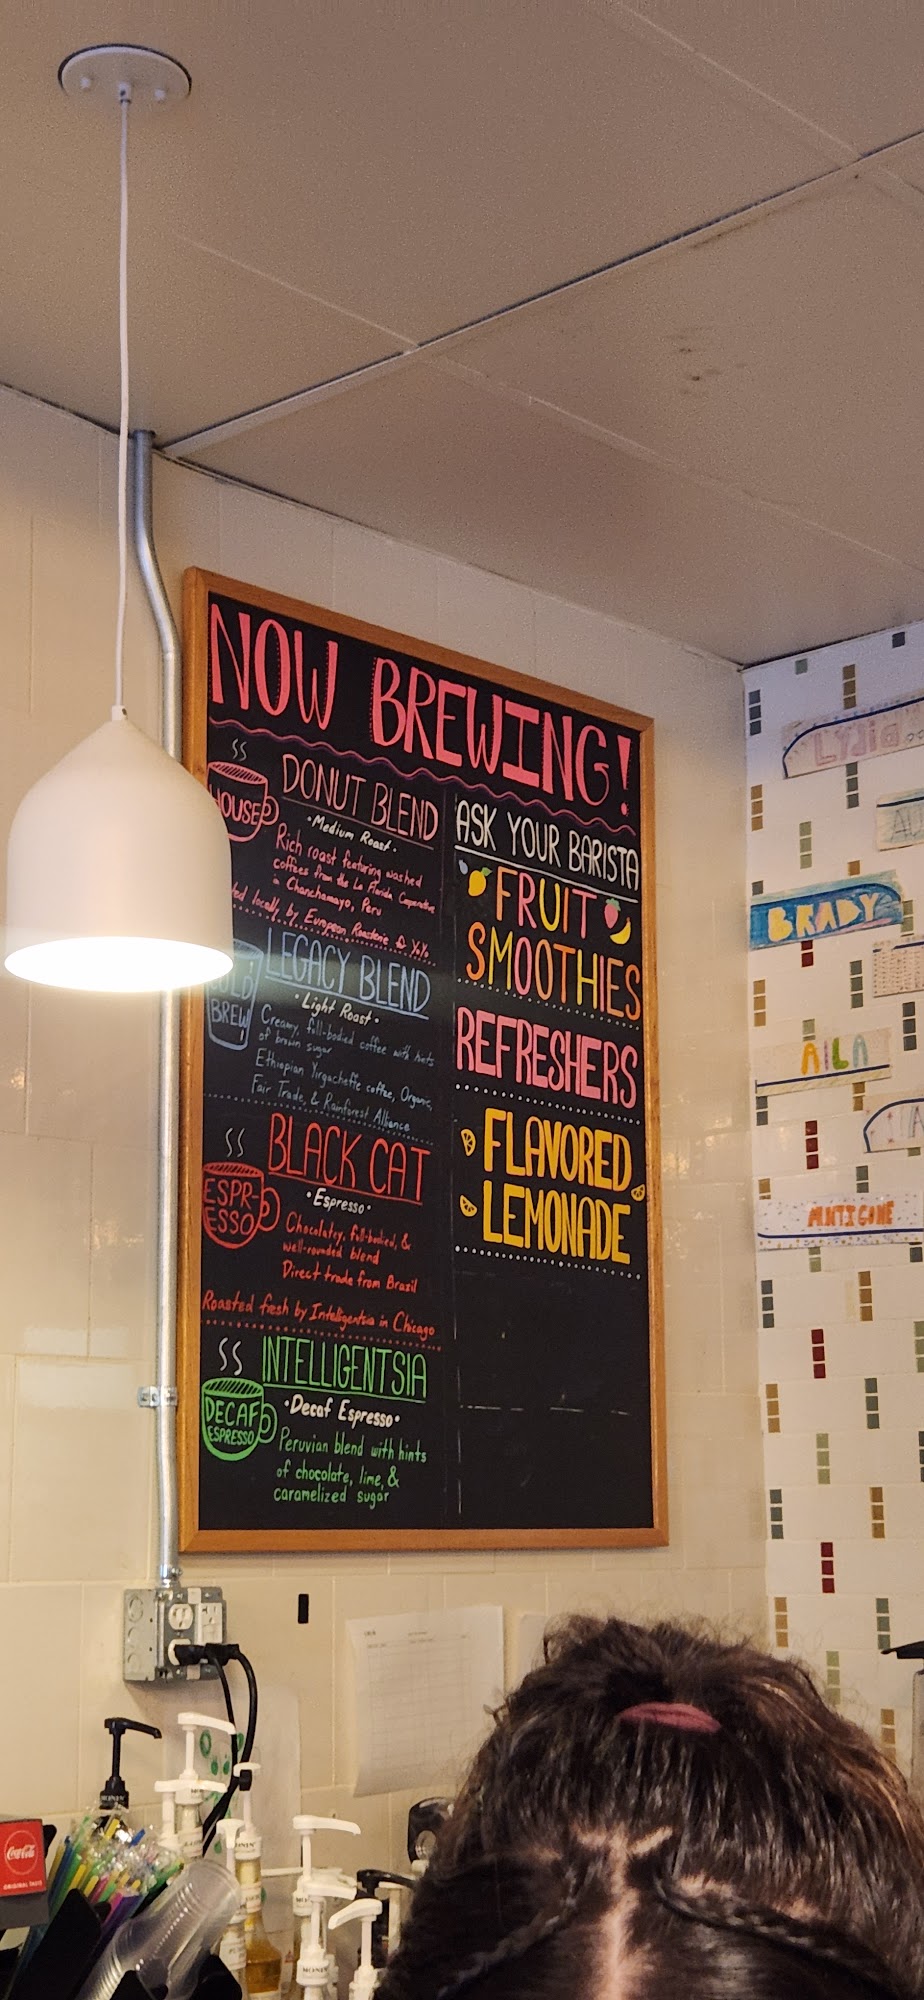 NOW BREWING!
HOUSE
DONUT BLEND
•Medium Roast•
Rich roast featuring washed
coffees from the La Florida Cooperative
in Chanchamayo, Peru
locally by European Roasterie & YoYo
BREW
LEGACY BLEND
•Light Roast•
Creamy, full-bodied coffee with hints
of brown sugar
Ethiopian Yirgacheffe coffee, Organic,
Fair Trade, & Rainforest Alliance
ESPR-
ESSO
BLACK CAT
•Espresso•
Chocolatey, full-bodied, &
well-rounded blend
Direct trade from Brazil
Roasted fresh by Intelligentsia in Chicago
DECAF
ESPRESSO
INTELLIGENTSIA
•Decaf Espresso•
Peruvian blend with hints
of chocolate, lime, &
caramelized sugar
ASK YOUR BARISTA
FRUIT
SMOOTHIES
REFRESHERS
FLAVORED
LEMONADE
Lydia
BRADY
AILA
ANTIGONE
MONIN
Coca-Cola
ORIGINAL TASTE